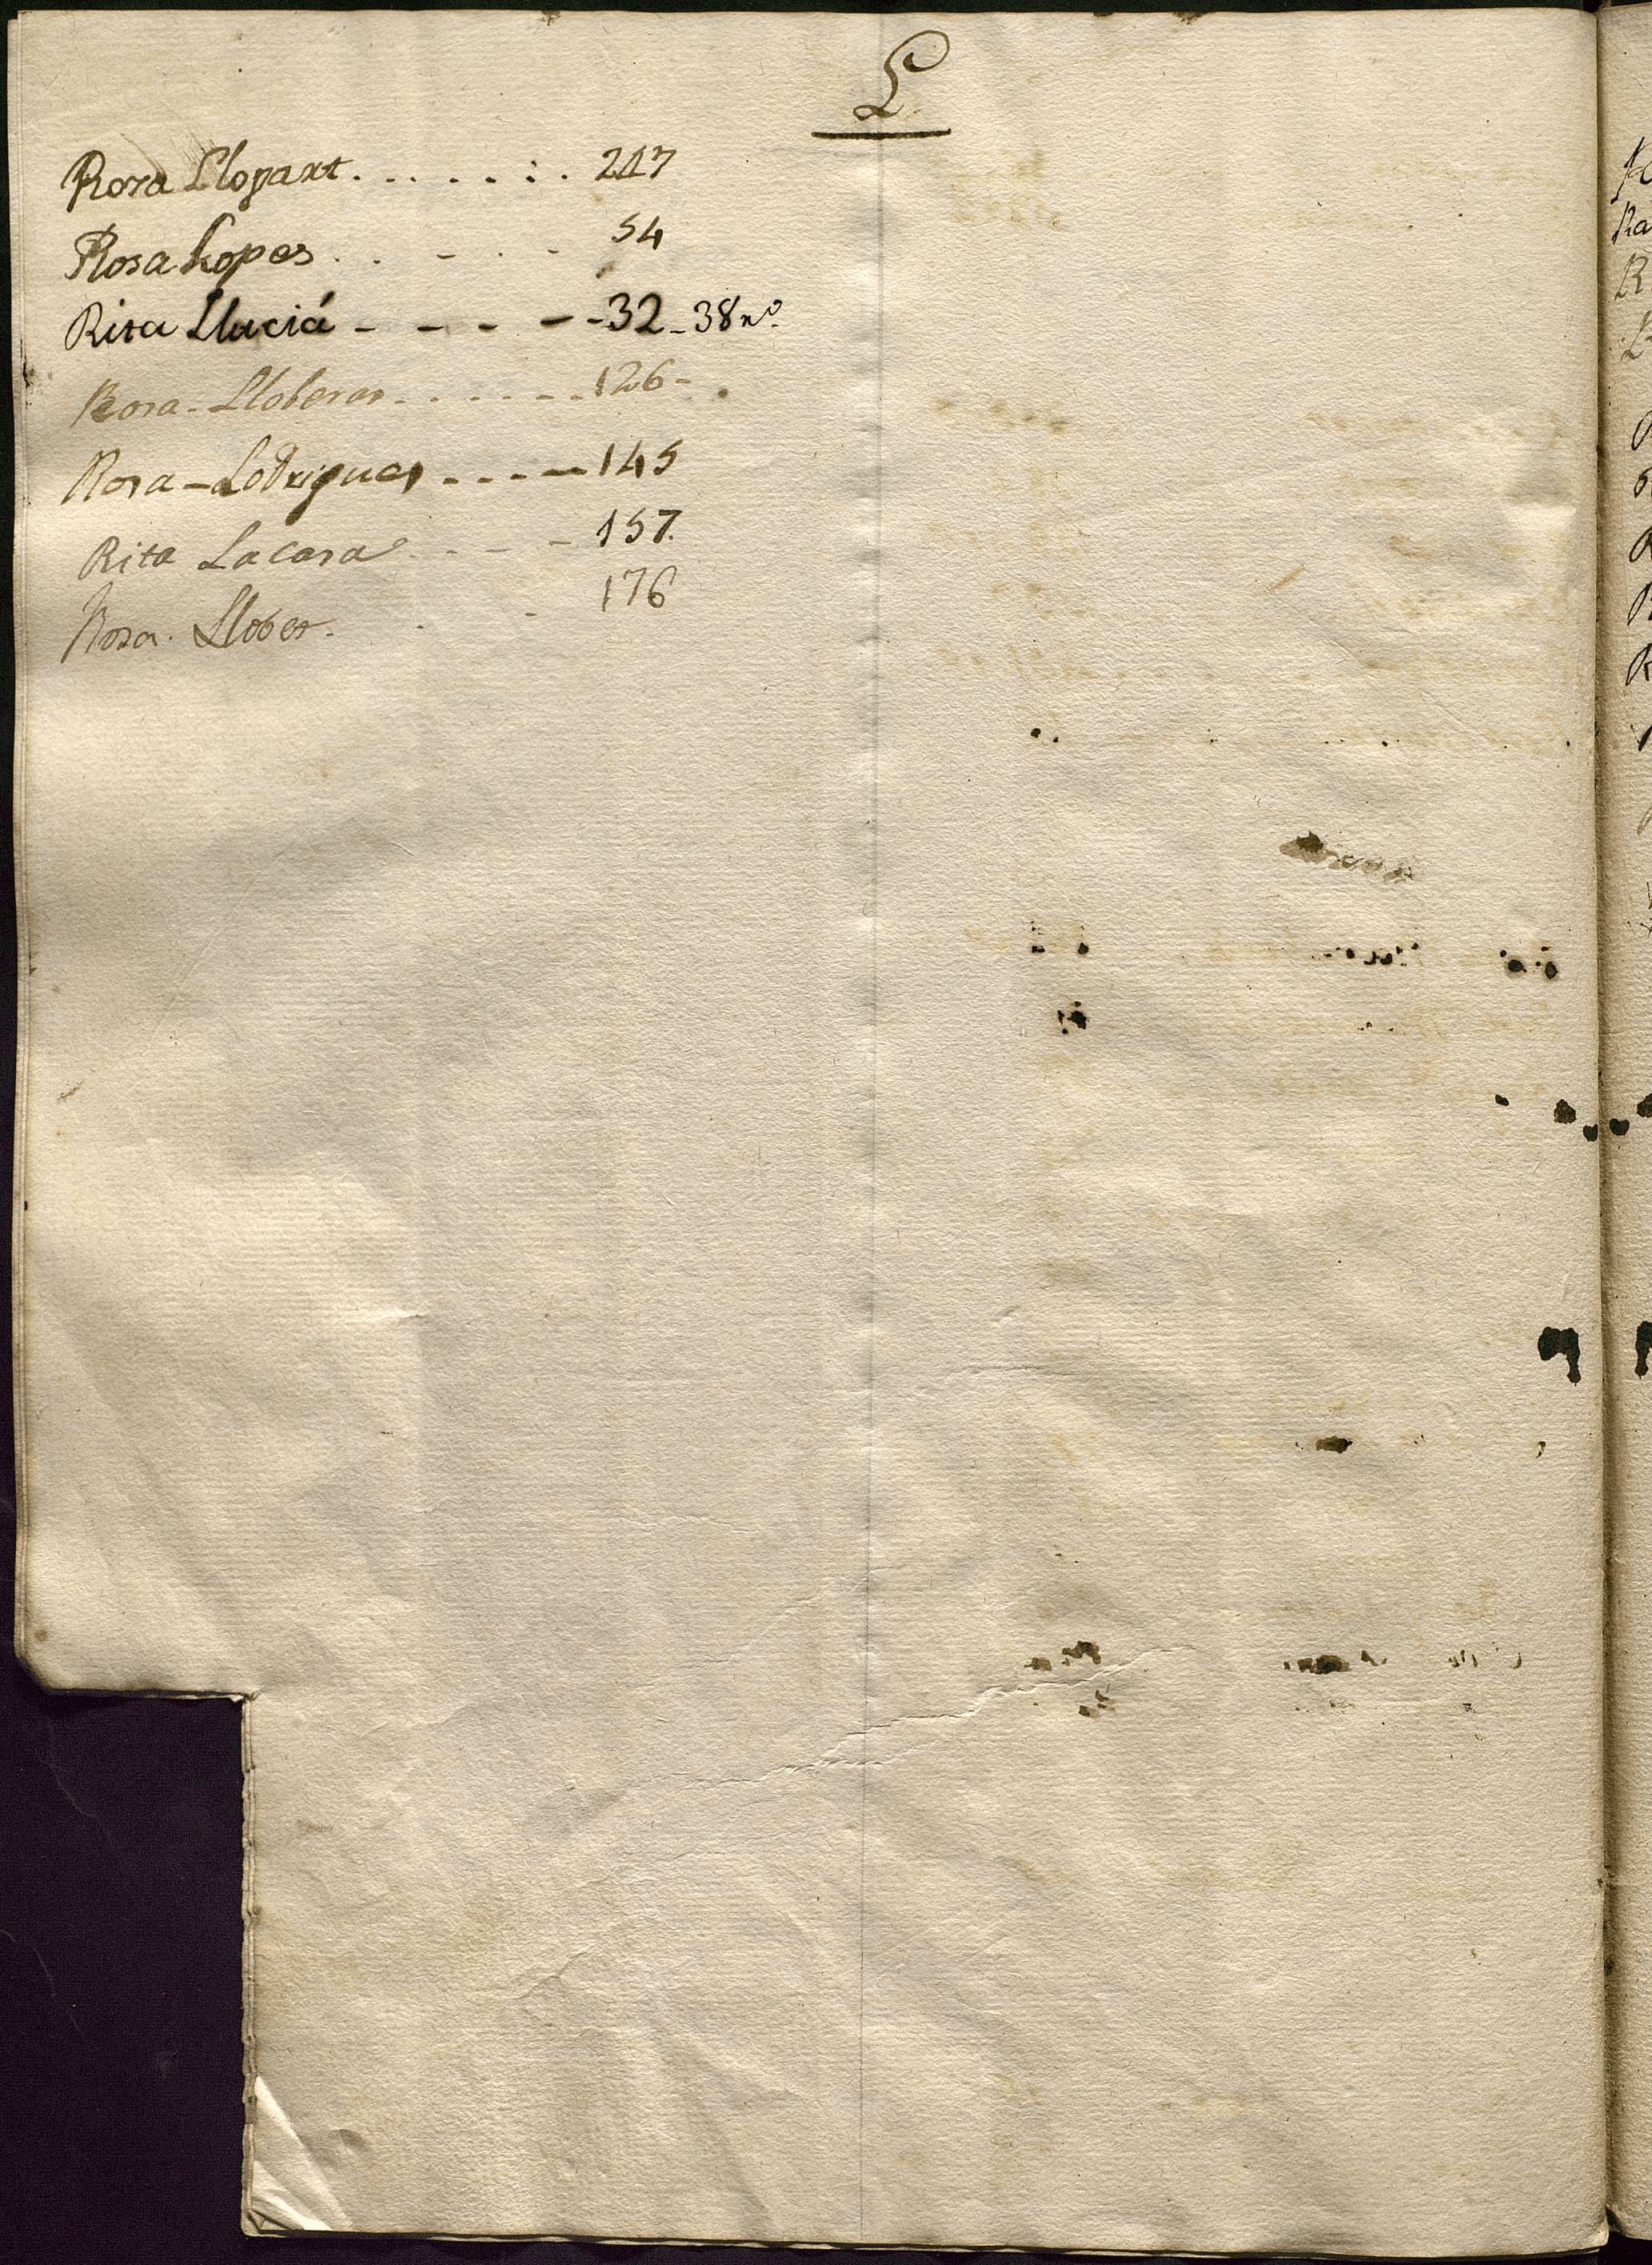 L
Rosa Llopart. . . . . . : . 217
Rosa Lopes . . - . . - 54
Rita Lluciá - - - - -32-38 no.
Rosa-Lloberas- . . . . . . 126-
Rosa-Lodrigues - - - - 145
Rita Lacasa - - - 157.
Rosa. Llober. . - 176